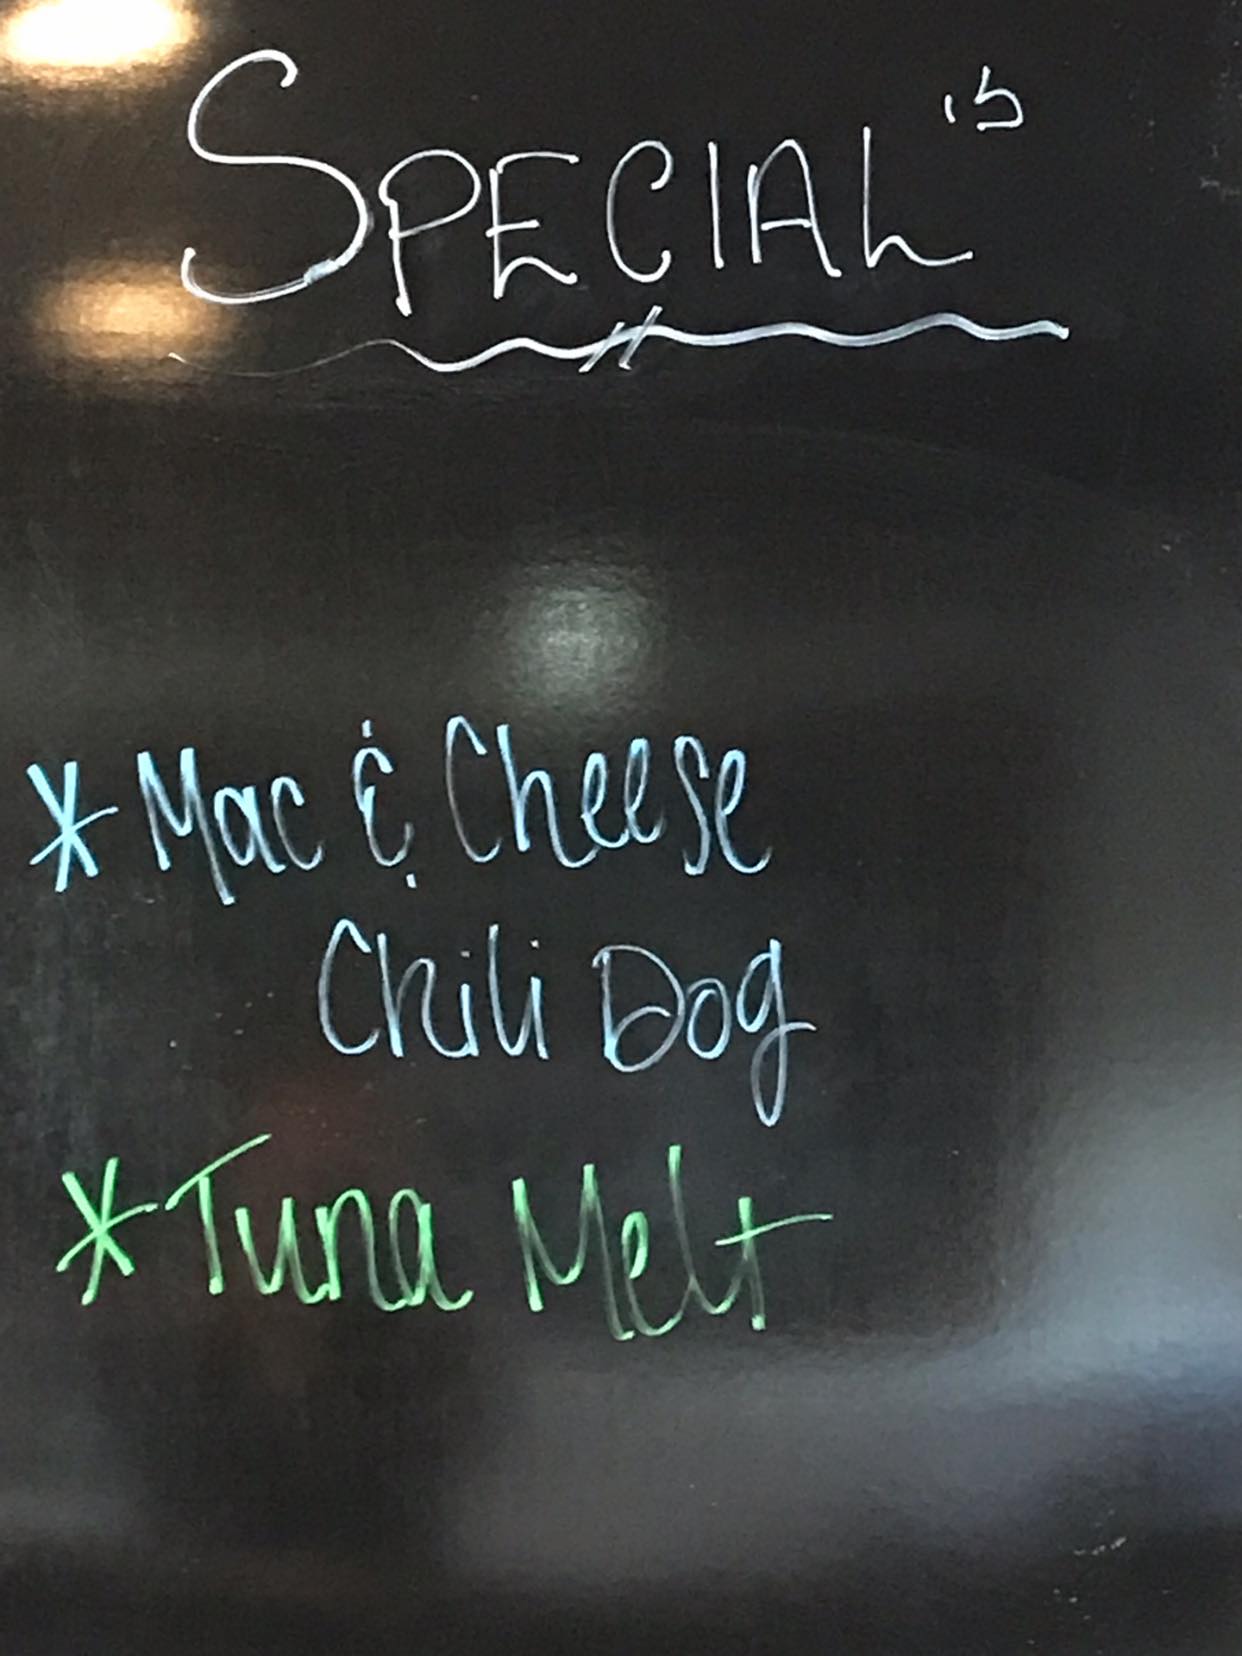 SPECIAL's
* Mac & Cheese
Chili Dog
* Tuna Melt